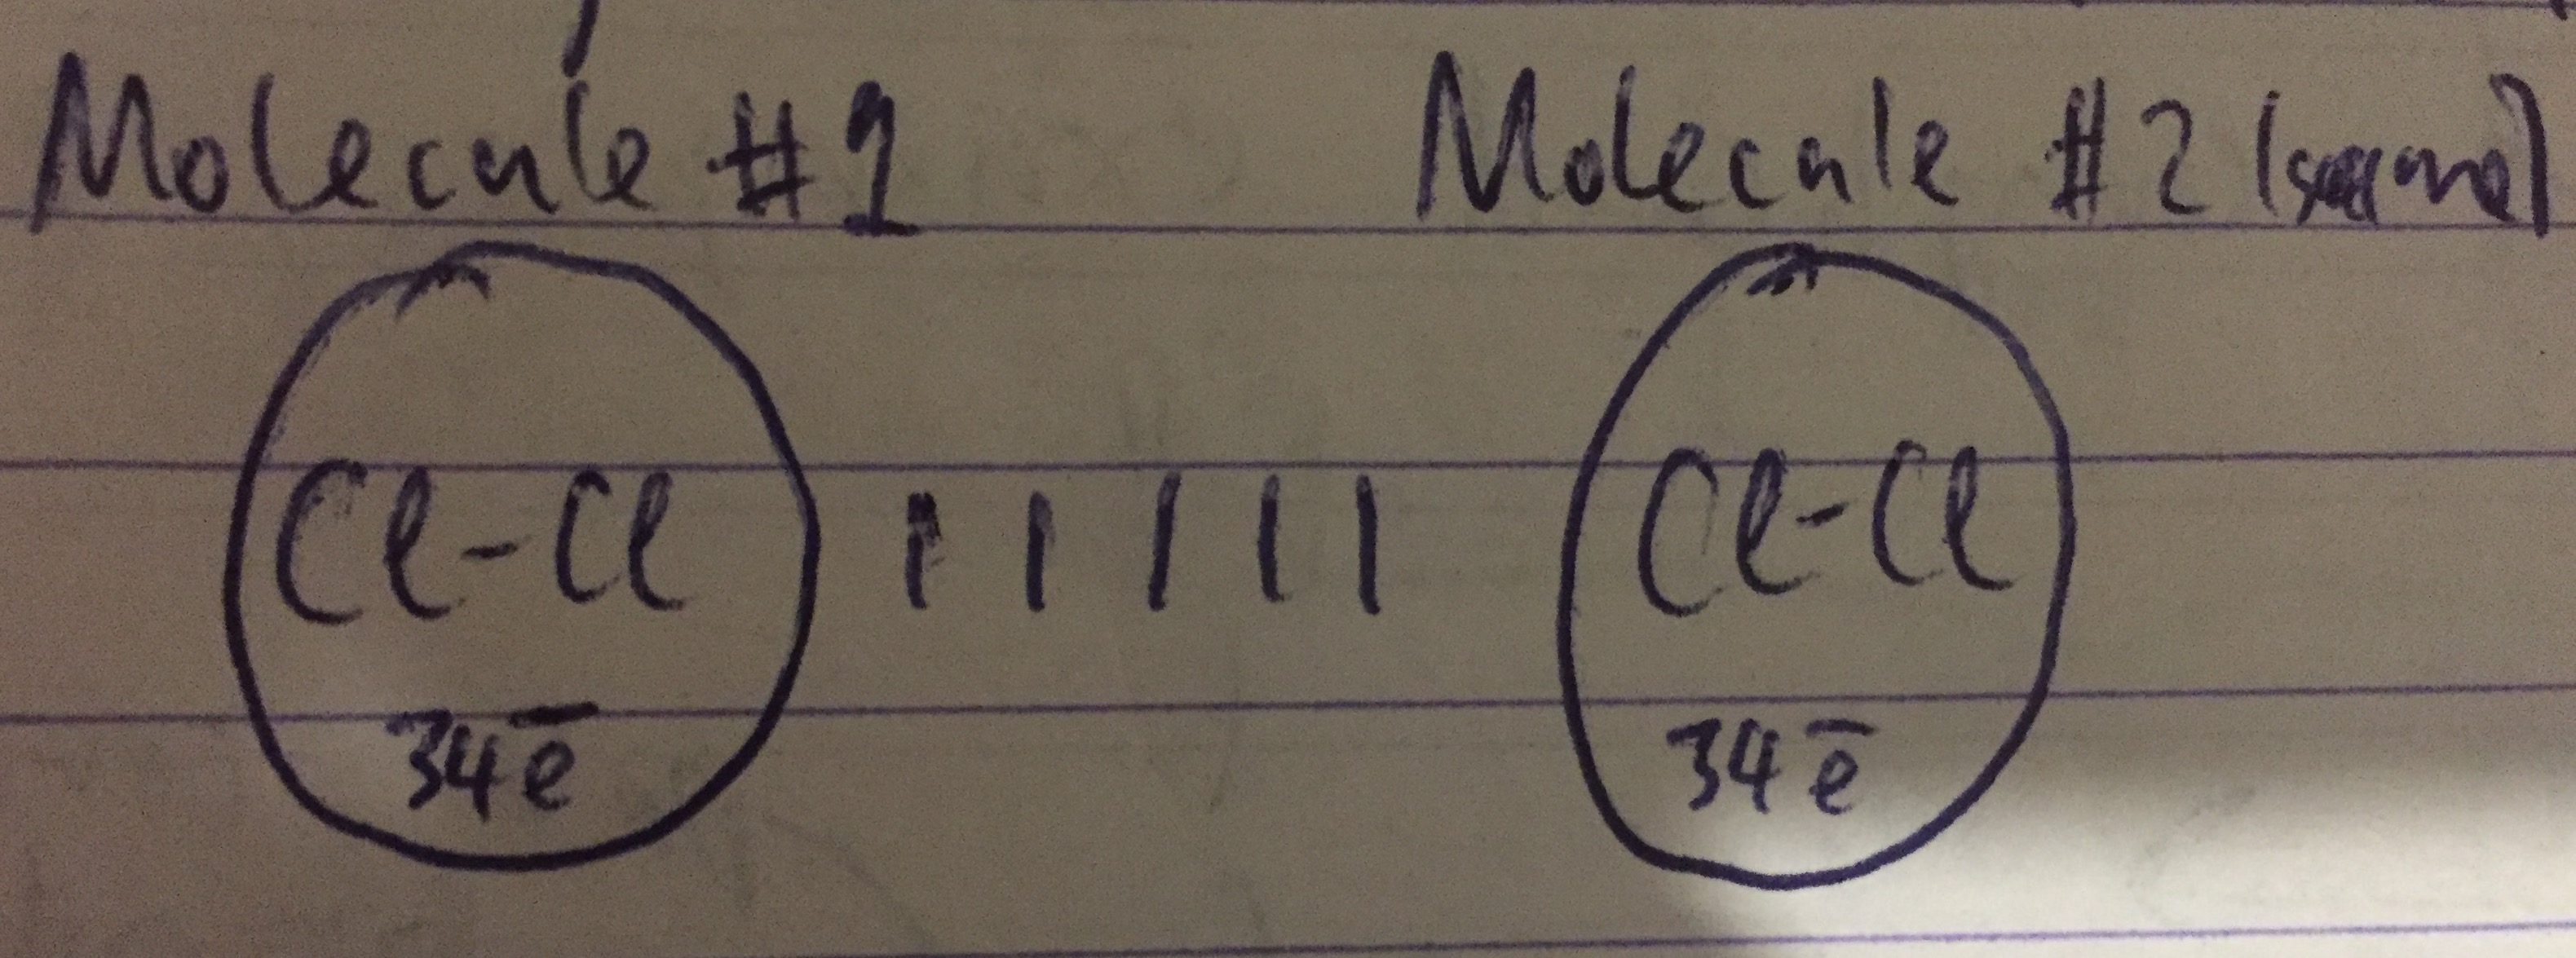 Molecule #1 Molecule #2 (second)
Cl-Cl | | | | | Cl-Cl
34e̅ 34e̅